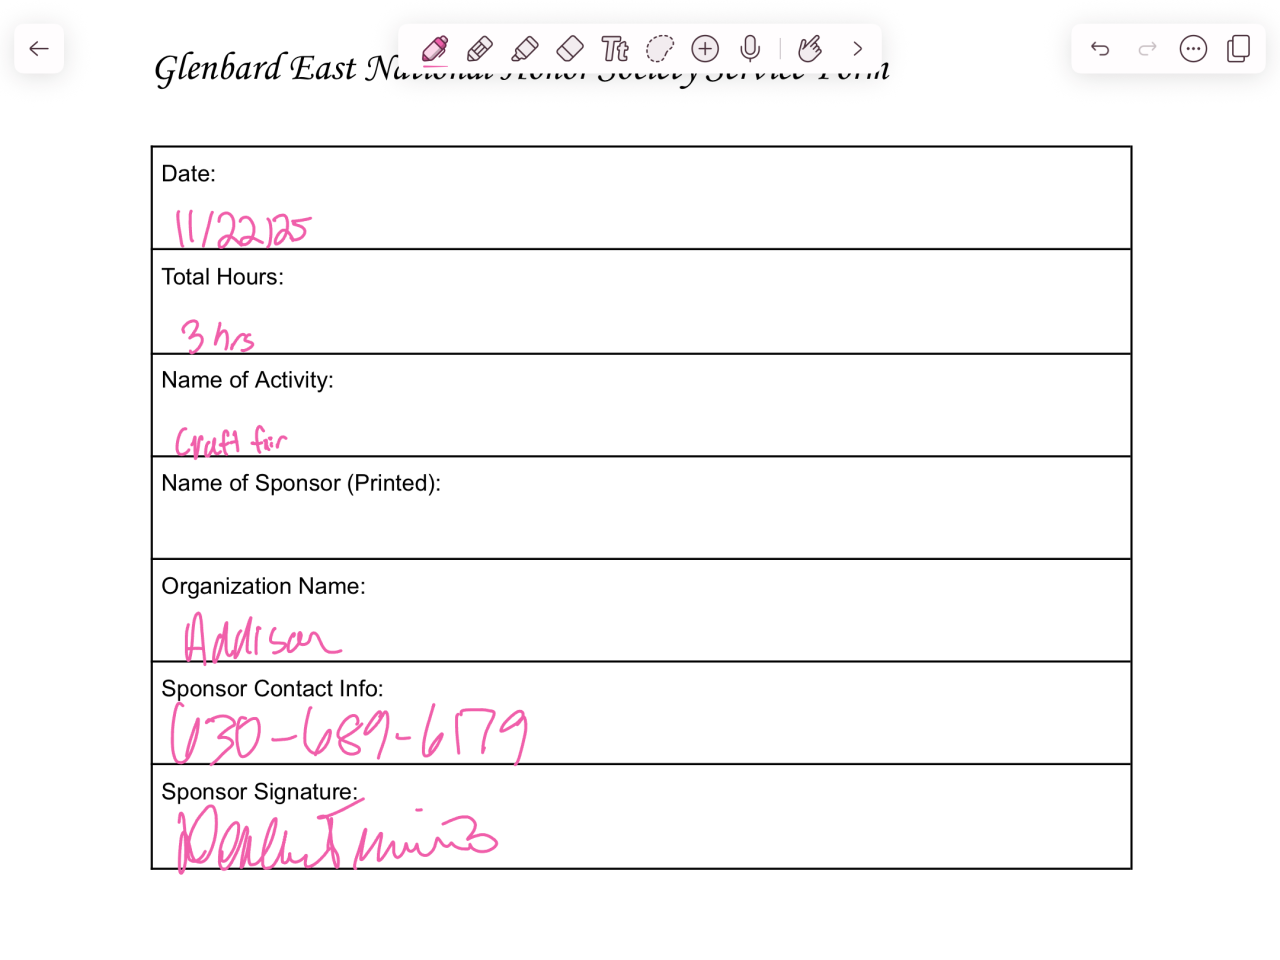 Glenbard East National Honor Society Service Form
Date:
11/22/25
Total Hours:
3 hrs
Name of Activity:
Craft fair
Name of Sponsor (Printed):
Organization Name:
Addison
Sponsor Contact Info:
630-689-6179
Sponsor Signature: